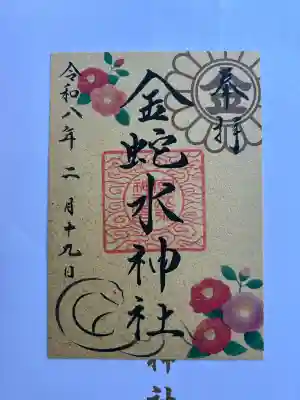 奉拝
金
金蛇水神社
令和八年二月十九日
神社